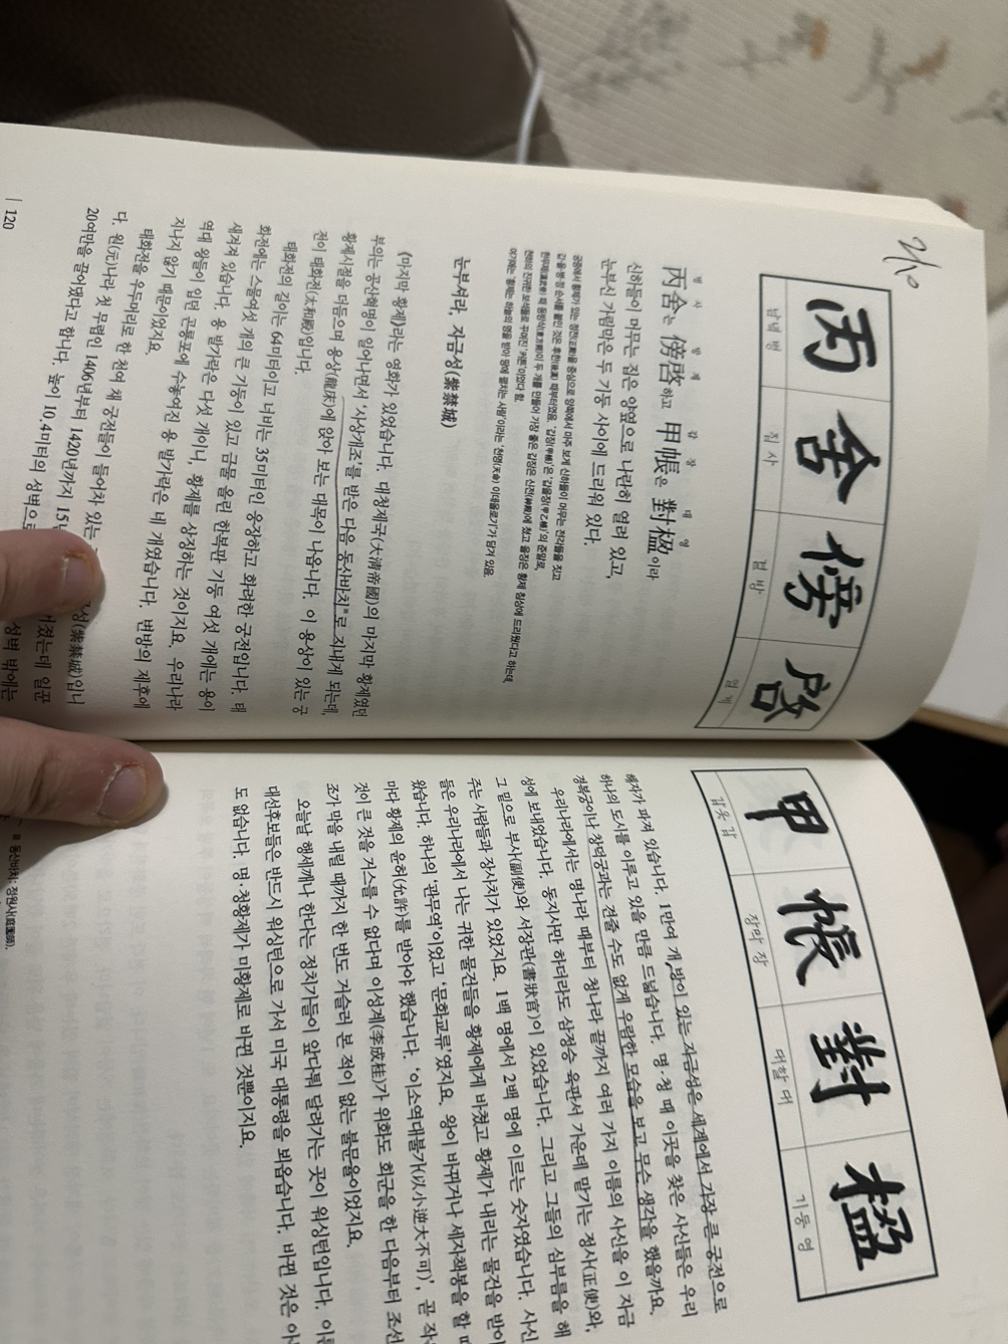 2/10
丙 舍 傍 啓
남녘 병 집 사 곁 방 열 계
병 사 방 계 갑 장 대 영
丙舍는 傍啓하고 甲帳은 對楹이라
신하들이 머무는 집은 양옆으로 나란히 열려 있고,
눈부신 가림막은 두 기둥 사이에 드리워 있다.
궁중에서 황제가 있는 정전(正殿)을 중심으로 양쪽에서 마주 보게 신하들이 머무는 전각들을 짓고
갑·을·병·정 순서를 붙인 것은 후한(後漢) 때부터였음. '갑장(甲帳)'은 '갑을장(甲乙帳)'의 준말로,
한무제(漢武帝) 때 동방삭(東方朔)이 두 개를 만들어 가장 좋은 갑장은 신전(神殿)에 쳤고 을장은 황제 침상에 드리웠다고 하는데,
천하의 진귀한 보석들로 꾸며진 '커튼'이었다 함.
여기에는 '황제는 하늘의 명을 받아 땅에 펼치는 사람'이라는 '천명(天命) 이데올로기'가 담겨 있음.
눈부셔라, 자금성(紫禁城)
〈마지막 황제〉라는 영화가 있었습니다. 대청제국(大淸帝國)의 마지막 황제였던
부의는 공산혁명이 일어나면서 '사상개조'를 받은 다음 동산바치로 지내게 되는데,
황제시절을 더듬으며 용상(龍床)에 앉아 보는 대목이 나옵니다. 이 용상이 있는 궁
전이 태화전(太和殿)입니다.
태화전의 길이는 64미터이고 너비는 35미터인 웅장하고 화려한 궁전입니다. 태
화전에는 스물여섯 개의 큰 기둥이 있고 금물 올린 한복판 기둥 여섯 개에는 용이
새겨져 있습니다. 용 발가락은 다섯 개이니, 황제를 상징하는 것이지요. 우리나라
역대 왕들이 입던 곤룡포에 수놓여진 용 발가락은 네 개였습니다. 변방의 제후에
지나지 않기 때문이었지요.
태화전을 우두머리로 한 천여 채 궁전들이 들어차 있는 성(紫禁城)입니
다. 원(元)나라 첫 무렵인 1406년부터 1420년까지 15년 졌는데 일꾼
20여만을 끌어댔다고 합니다. 높이 10.4미터의 성벽으로 성벽 밖에는
| 120
甲 帳 對 楹
갑옷 갑 장막 장 대할 대 기둥 영
해자가 파져 있습니다. 1만여 개 방이 있는 자금성은 세계에서 가장 큰 궁전으로
하나의 도시를 이루고 있을 만큼 드넓습니다. 명·청 때 이곳을 찾은 사신들은 우리
경복궁이나 창덕궁과는 견줄 수도 없게 우람한 모습을 보고 무슨 생각을 했을까요.
우리나라에서는 명나라 때부터 청나라 끝까지 여러 가지 이름의 사신을 이 자금
성에 보내었습니다. 동지사만 하더라도 삼정승 육판서 가운데 맡기는 정사(正使)와,
그 밑으로 부사(副使)와 서장관(書狀官)이 있었습니다. 그리고 그들의 심부름을 해
주는 사람들과 장사치가 있었지요. 1백 명에서 2백 명에 이르는 숫자였습니다. 사신
들은 우리나라에서 나는 귀한 물건들을 황제에게 바쳤고 황제가 내리는 물건을 받아
왔습니다. 하나의 '관무역'이었고 '문화교류'였지요. 왕이 바뀌거나 세자책봉을 할 때
마다 황제의 윤허(允許)를 받아야 했습니다. '이소역대불가(以小逆大不可)', 곧 작은
것이 큰 것을 거스를 수 없다며 이성계(李成桂)가 위화도 회군을 한 다음부터 조선
조가 막을 내릴 때까지 한 번도 거슬러 본 적이 없는 불문율이었지요.
오늘날 행세깨나 한다는 정치가들이 앞다퉈 달려가는 곳이 워싱턴입니다.
대선후보들은 반드시 워싱턴으로 가서 미국 대통령을 뵈옵습니다. 바뀐 것은
도 없습니다. 명·청황제가 미황제로 바뀐 것뿐이지요.
동산바치: 정원사(庭園師).